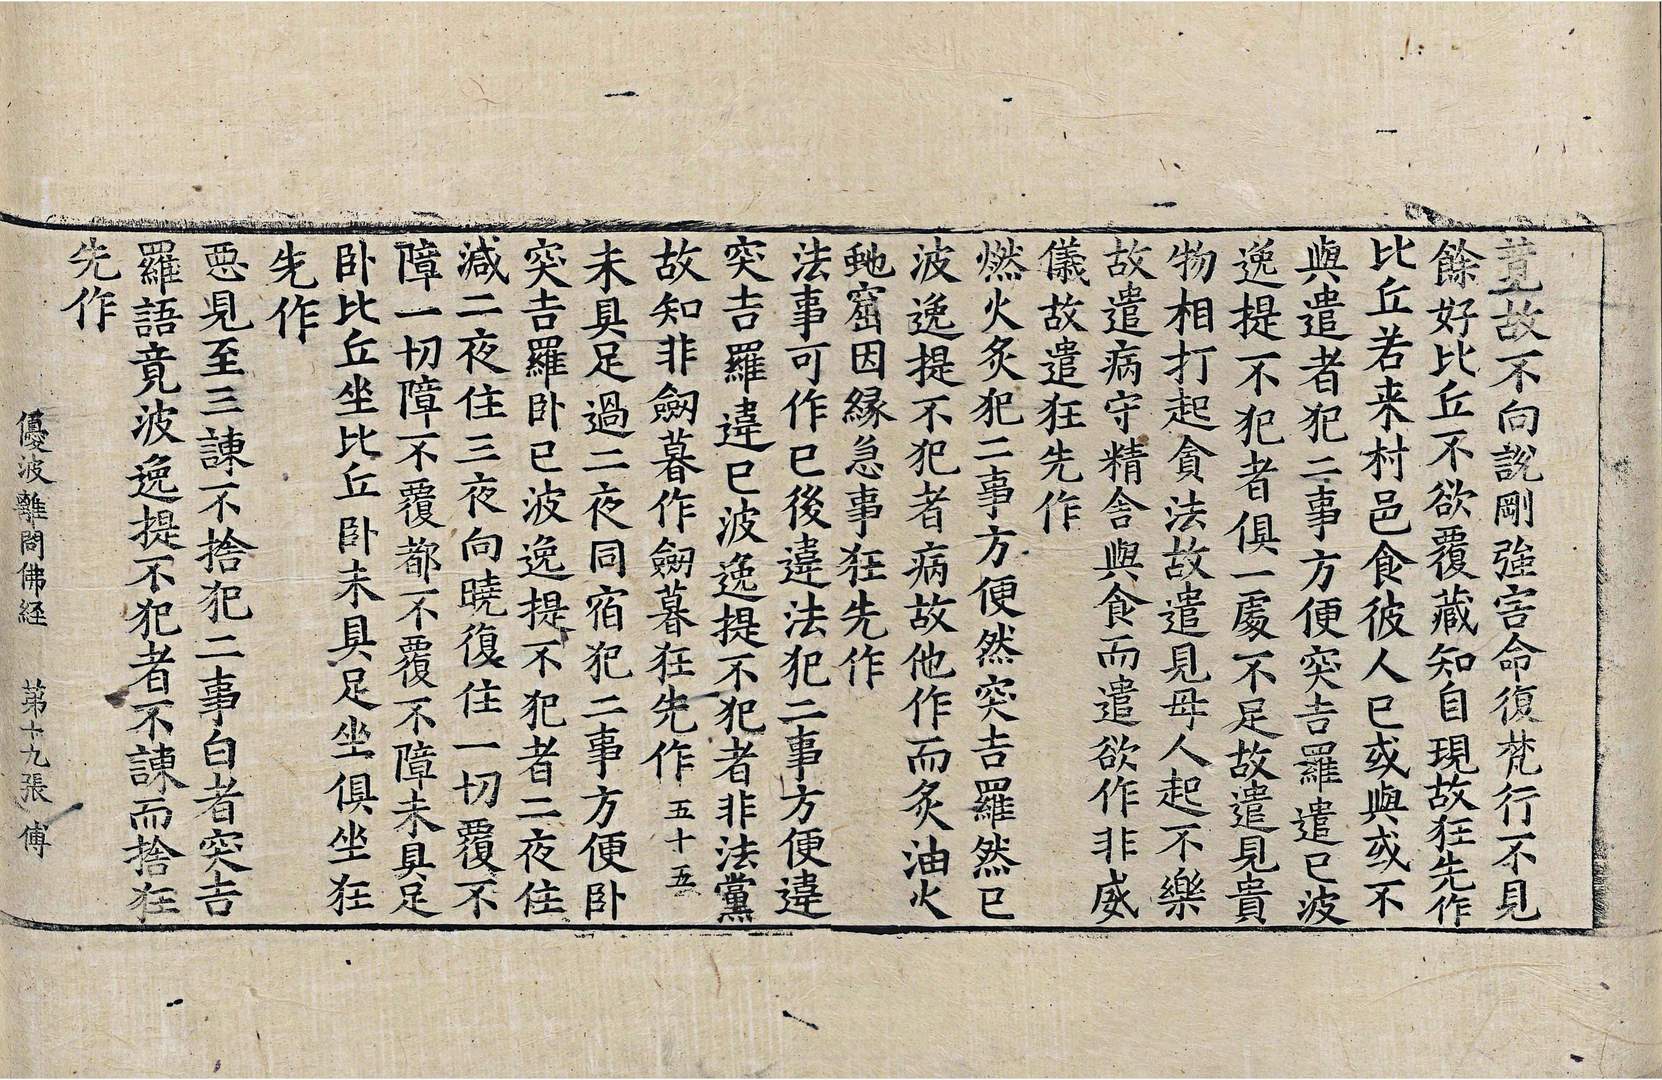 竟故不向說剛強害命復梵行不見
餘好比丘不欲覆藏知自現故狂先作
比丘若来村邑食彼人已或與或不
與遣者犯二事方便突吉羅遣已波
逸提不犯者俱一處不足故遣見貴
物相打起貪法故遣見母人起不樂
故遣病守精舍與食而遣欲作非威
儀故遣狂先作
燃火炙犯二事方便然突吉羅然已
波逸提不犯者病故他作而炙油火
虵窟因縁急事狂先作
法事可作已後違法犯二事方便違
突吉羅違已波逸提不犯者非法黨
故知非劒暮作劒暮狂先作五十五
未具足過二夜同宿犯二事方便卧
突吉羅卧已波逸提不犯者二夜住
減二夜住三夜向曉復住一切覆不
障一切障不覆都不覆不障未具足
卧比丘坐比丘卧未具足坐俱坐狂
先作
惡見至三諫不捨犯二事白者突吉
羅語竟波逸提不犯者不諫而捨狂
先作
優波離問佛経 苐十九張 傅